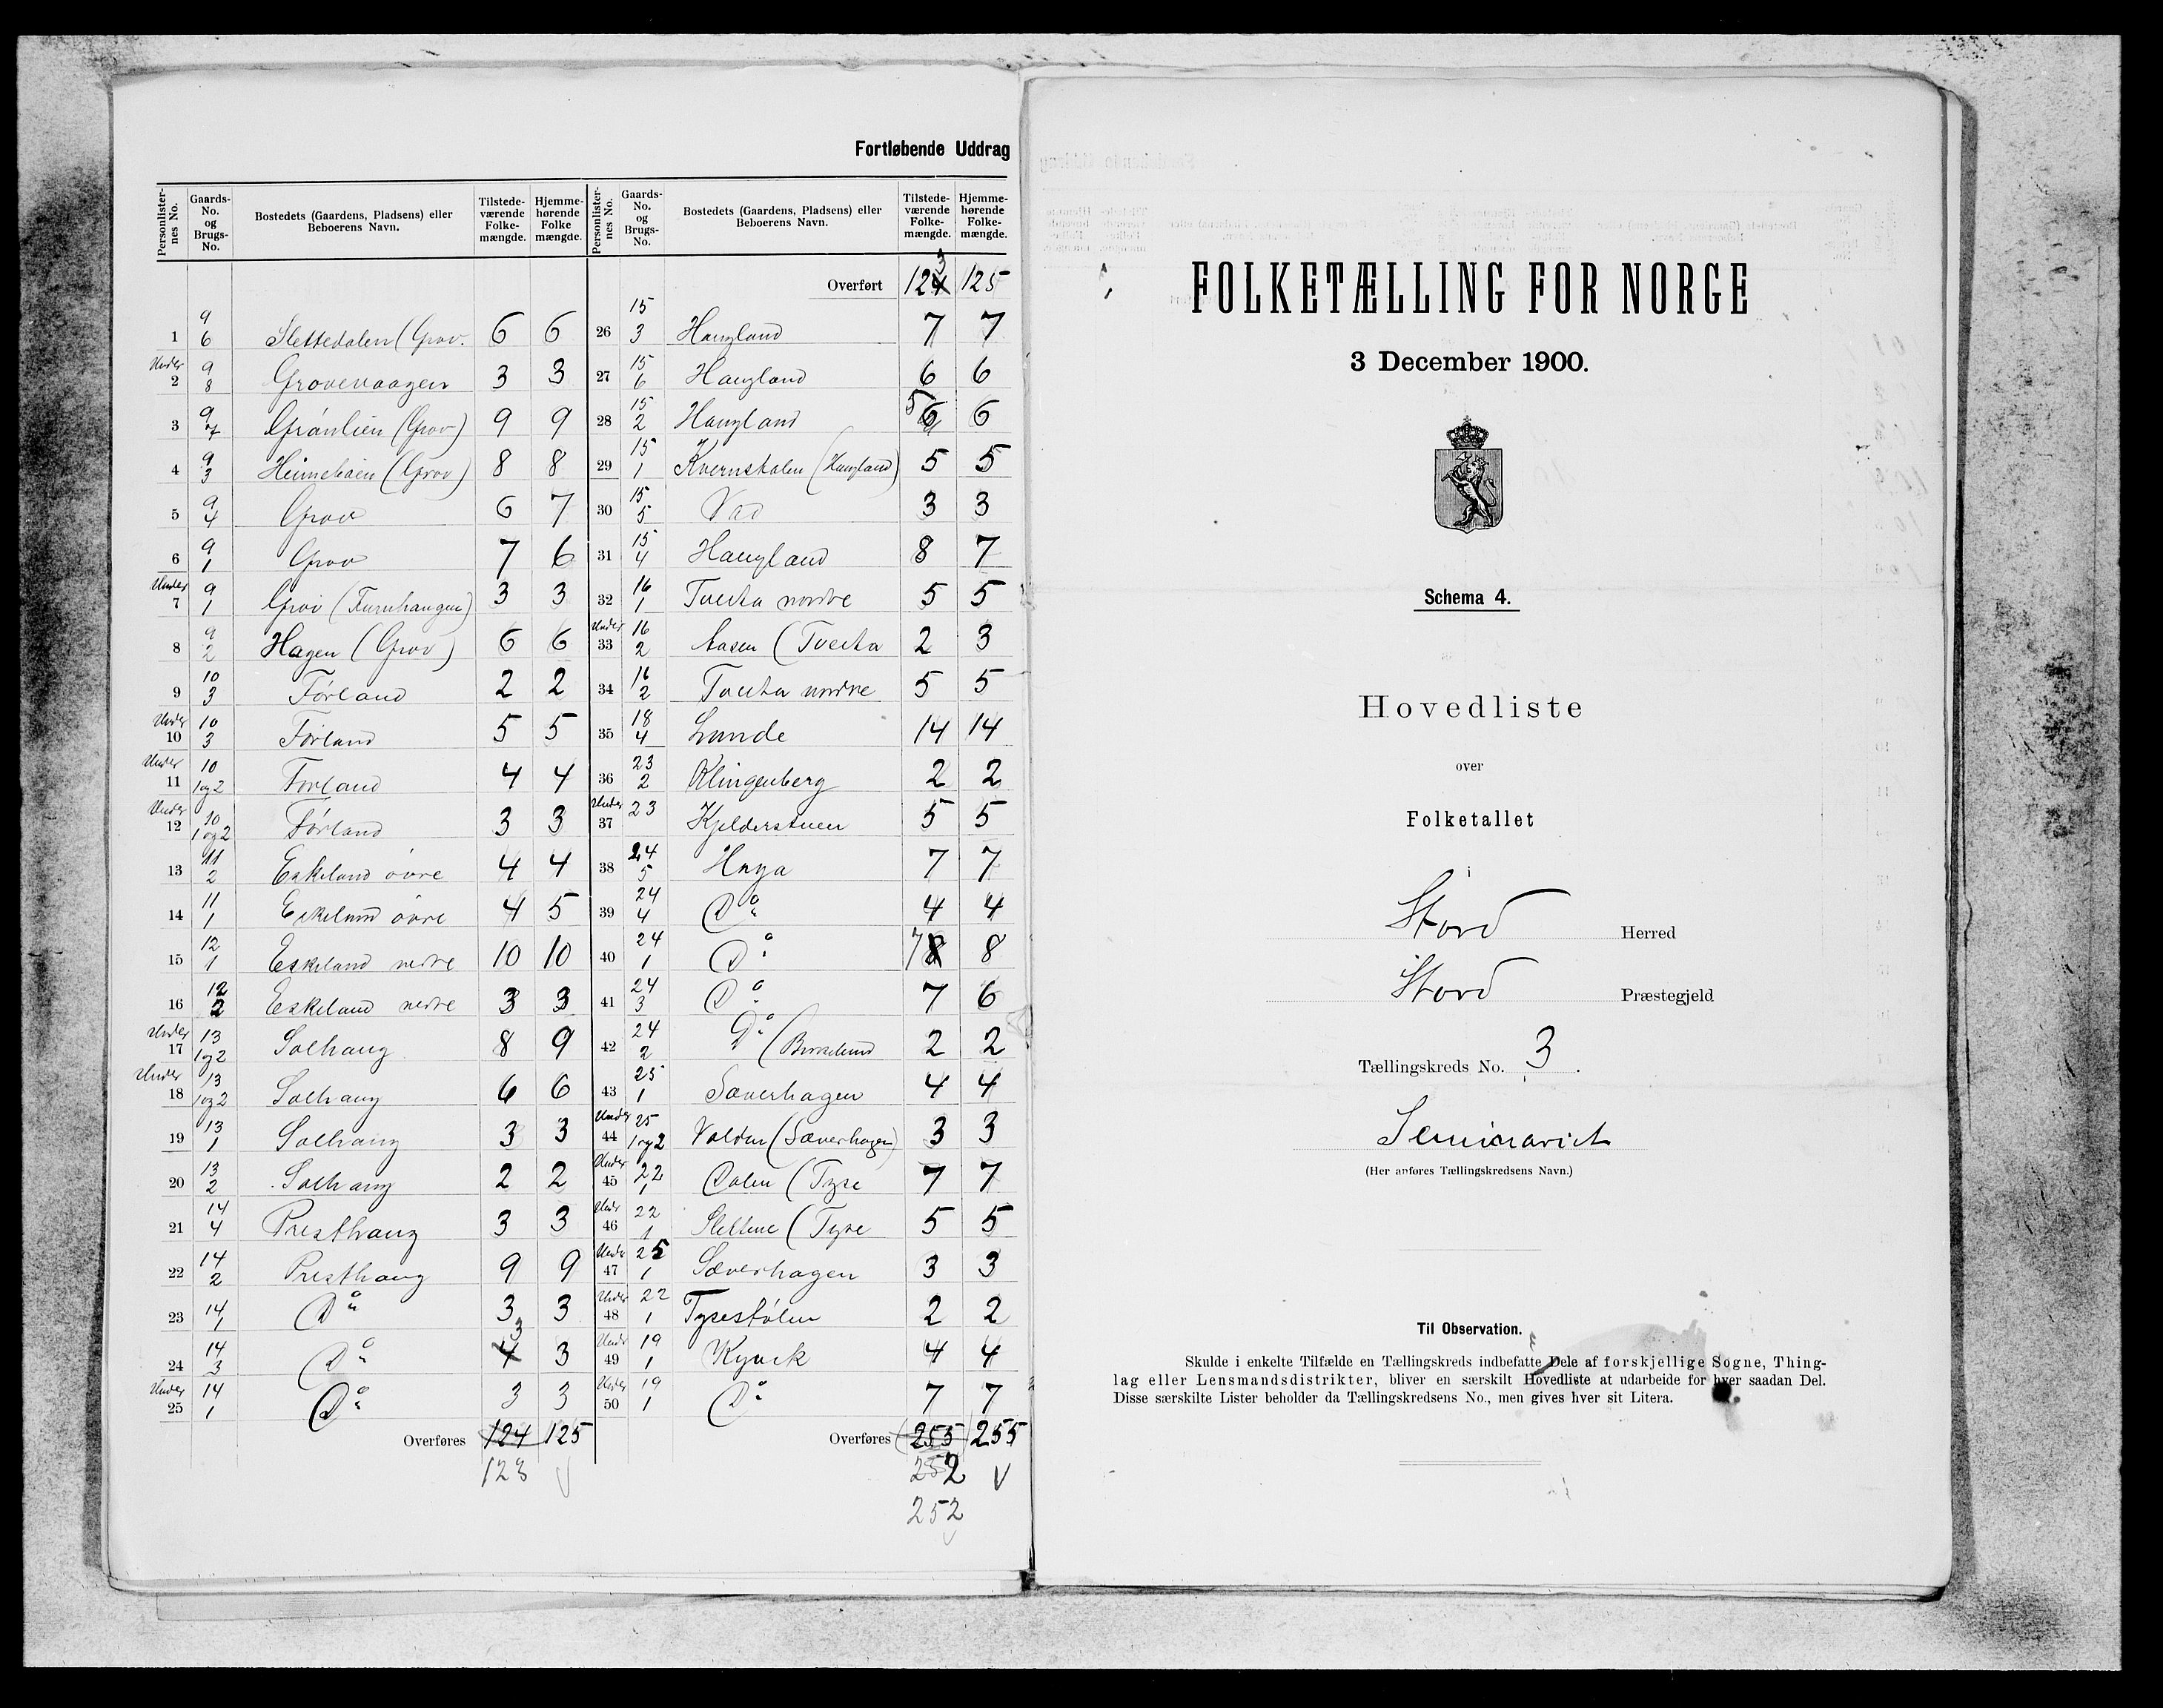 Fortløbende Uddrag
Personlister-nes No. | Gaards-No. og Brugs-No. | Bostedets (Gaardens, Pladsens) eller Beboerens Navn. | Tilstede-værende Folke-mængde. | Hjemme-hørende Folke mængde.
1 | 9 6 | Slettedalen (Grov. | 6 | 6
Under 2 | 9 8 | Grovevaagen | 3 | 3
3 | 9 7 | Grönlien (Grov) | 9 | 9
4 | 9 3 | (Grov) | 8 | 8
5 | 9 4 | Grov | 6 | 7
6 | 9 1 | Grov | 7 | 6
Under 7 | 9 1 | Grov (Furuhaugen) | 3 | 3
8 | 9 2 | Hagen (Grov) | 6 | 6
9 | 10 3 | Førland | 2 | 2
Under 10 | 10 3 | Førland | 5 | 5
Under 11 | 10 1 og 2 | Førland | 4 | 4
Under 12 | 10 1 og 2 | Førland | 3 | 3
13 | 11 2 | Eskeland övre | 4 | 4
14 | 11 1 | Eskeland övre | 4 | 5
15 | 12 1 | Eskeland nedre | 10 | 10
16 | 12 2 | Eskeland nedre | 3 | 3
Under 17 | 13 1 og 2 | Solhaug | 8 | 9
Under 18 | 13 1 og 2 | Solhaug | 6 | 6
19 | 13 1 | Solhaug | 3 | 3
20 | 13 2 | Solhaug | 2 | 2
21 | 14 4 | Presthaug | 3 | 3
22 | 14 2 | Presthaug | 9 | 9
23 | 14 1 | Do | 3 | 3
24 | 14 3 | Do | 4 3 | 3
Under 25 | 14 1 | Do | 3 | 3
Overføres | 124 | 125
123
Personlister-nes No. | Gaards-No. og Brugs-No. | Bostedets (Gaardens, Pladsens) eller Beboerens Navn. | Tilstede-værende Folke-mængde. | Hjemme-hørende Folke-mængde.
Overført | 124 3 | 125
26 | 15 3 | Haugland | 7 | 7
27 | 15 6 | Haugland | 6 | 6
28 | 15 2 | Haugland | 5 6 | 6
29 | 15 1 | Kvernstølen (Haugland) | 5 | 5
30 | 15 5 | Vad | 3 | 3
31 | 15 4 | Haugland | 8 | 7
32 | 16 1 | Tveita nordre | 5 | 5
Under 33 | 16 2 | Aasen (Tveita | 2 | 3
34 | 16 2 | Tveita nordre | 5 | 5
35 | 18 4 | Lunde | 14 | 14
36 | 23 2 | Klingenberg | 2 | 2
Under 37 | 23 | Kjelderstuen | 5 | 5
38 | 24 5 | Haga | 7 | 7
39 | 24 4 | Do | 4 | 4
40 | 24 1 | Do | 7 8 | 8
41 | 24 3 | Do | 7 | 6
42 | 24 2 | Do | 2 | 2
43 | 25 1 | Sæverhagen | 4 | 4
Under 44 | 25 1 og 2 | Volden (Sæverhagen) | 3 | 3
Under 45 | 22 1 | Dalen (Tyse | 7 | 7
Under 46 | 22 1 | Slettene (Tyse | 5 | 5
Under 47 | 25 1 | Sæverhagen | 3 | 3
Under 48 | 22 1 | Tysestølen | 2 | 2
Under 49 | 19 1 | Kyvik | 4 | 4
Under 50 | 19 1 | Do | 7 | 7
Overføres | 255 | 255
252
252
FOLKETÆLLING FOR NORGE
3 December 1900.
Schema 4.
Hovedliste
over
Folketallet
i
Stord Herred
Stord Præstegjeld
Tællingskreds No. 3.
Seminariet
(Her anføres Tællingskredsens Navn.)
Til Observation.
Skulde i enkelte Tilfælde en Tællingskreds indbefatte Dele af forskjellige Sogne, Thing-
lag eller Lensmandsdistrikter, bliver en særskilt Hovedliste at udarbeide for hver saadan Del.
Disse særskilte Lister beholder da Tællingskredsens No., men gives hver sit Litera.